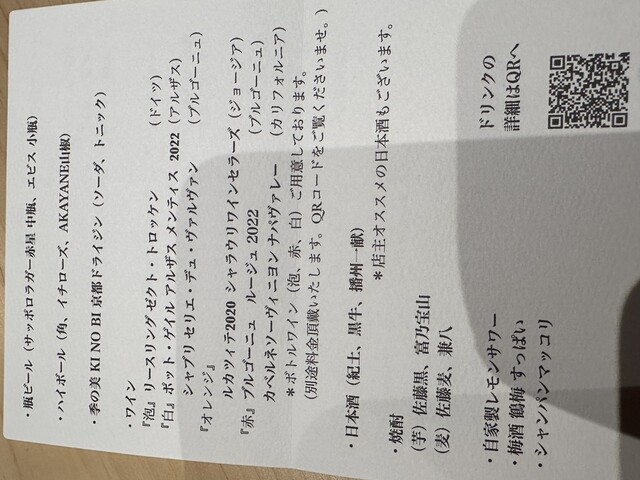 ・瓶ビール（サッポロラガー赤星 中瓶、エビス 小瓶）
・ハイボール（角、イチローズ、AKAYANE山椒）
・季の美 KI NO BI 京都ドライジン（ソーダ、トニック）
・ワイン
『泡』リースリング ゼクト・トロッケン （ドイツ）
『白』ボット・ゲイル アルザス メンティス 2022（アルザス）
シャブリ セリエ・デュ・ヴァルヴァン （ブルゴーニュ）
『オレンジ』
ルカツィテ2020 シャラウリワインセラーズ（ジョージア）
『赤』ブルゴーニュ ルージュ 2022 （ブルゴーニュ）
カベルネソーヴィニヨン ナパヴァレー （カリフォルニア）
＊ボトルワイン（泡、赤、白）ご用意しております。
（別途料金頂戴いたします。QRコードをご覧くださいませ。）
・日本酒（紀土、黒牛、播州一献）
＊店主オススメの日本酒もございます。
・焼酎
（芋）佐藤黒、富乃宝山
（麦）佐藤麦、兼八
・自家製レモンサワー
・梅酒 鶴梅 すっぱい
・シャンパンマッコリ
ドリンクの
詳細はQRへ